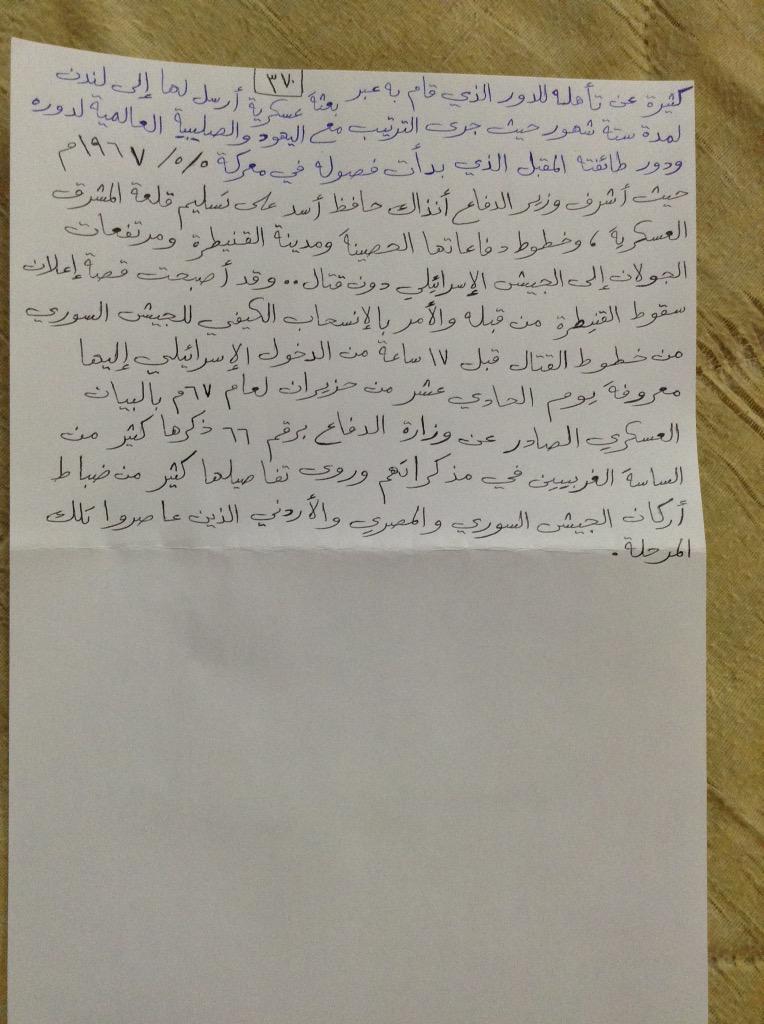 ٣٧٠
كثيرة عن تأهله للدور الذي قام به عبر بعثة عسكرية أرسل لها إلى لندن
لمدة ستة شهور حيث جرى الترتيب مع اليهود والصليبية العالمية لدوره
ودور طائفته المقبل الذي بدأت فصوله في معركة ٥/٥/١٩٦٧م
حيث أشرف وزير الدفاع أنذاك حافظ أسد على تسليم قلعة المشرق
العسكرية، وخطوط دفاعاتها الحصينة ومدينة القنيطرة ومرتفعات
الجولان إلى الجيش الإسرائيلي دون قتال.. وقد أصبحت قصة إعلان
سقوط القنيطرة من قبله والأمر بالإنسحاب الكيفي للجيش السوري
من خطوط القتال قبل ١٧ ساعة من الدخول الإسرائيلي إليها
معروفة يوم الحادي عشر من حزيران لعام ٦٧م بالبيان
العسكري الصادر عن وزارة الدفاع برقم ٦٦ ذكرها كثير من
الساسة الغربيين في مذكراتهم وروى تفاصيلها كثير من ضباط
أركان الجيش السوري والمصري والأردني الذين عاصروا تلك
المرحلة.